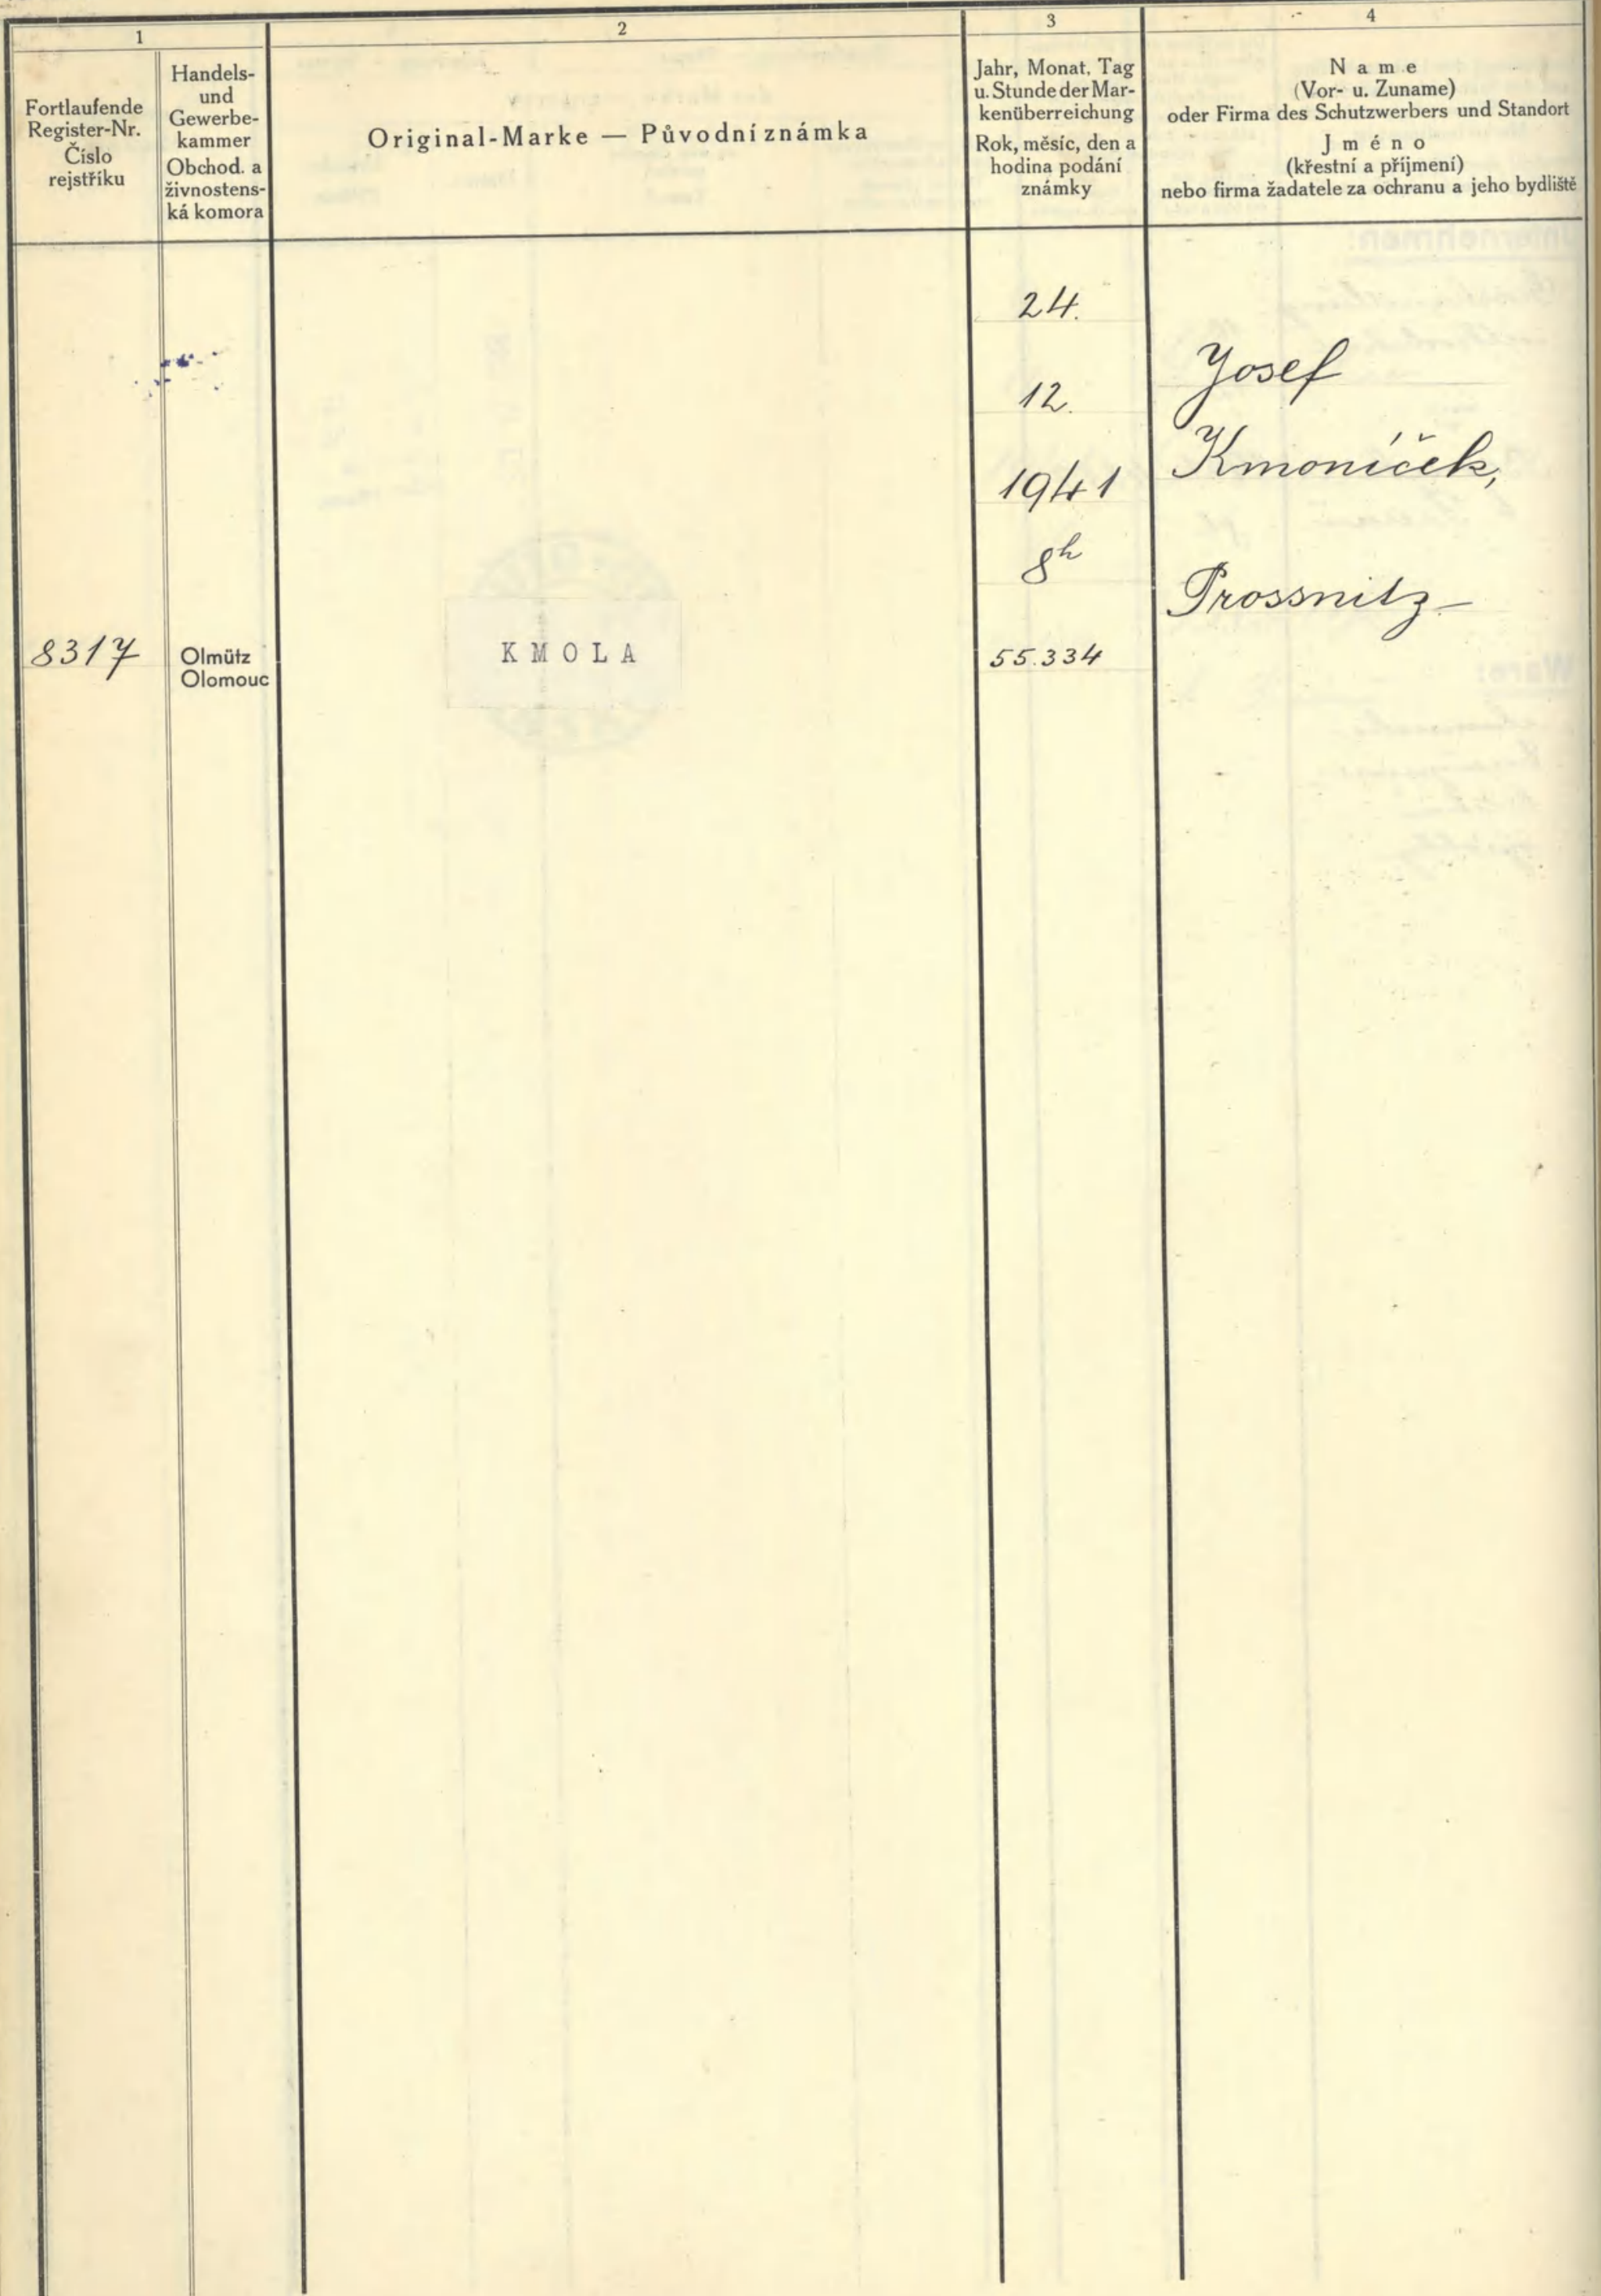 1
2
3
4
Fortlaufende
Register-Nr.
Číslo
rejstříku
Handels-
und
Gewerbe-
kammer
Obchod. a
živnostens-
ká komora
Original-Marke — Původní známka
Jahr, Monat, Tag
u. Stunde der Mar-
kenüberreichung
Rok, měsíc, den a
hodina podání
známky
Name
(Vor- u. Zuname)
oder Firma des Schutzwerbers und Standort
Jméno
(křestní a příjmení)
nebo firma žadatele za ochranu a jeho bydliště
24.
12.
1941
8h
55.334
Josef
Kmoníček,
Prossnitz
8317
Olmütz
Olomouc
KMOLA